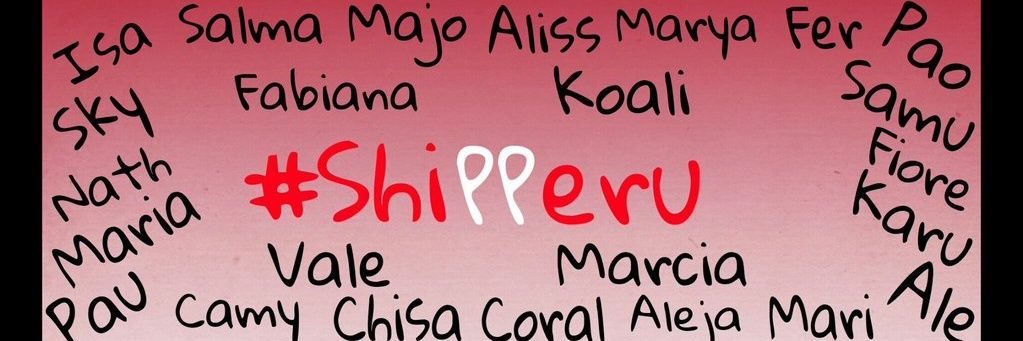 Isa Salma Majo Aliss Marya Fer Pao
Sky Fabiana Koali Samu
Nath #ShiPPeru Fiore
Maria Karu
Vale Marcia
Pau Camy Chisa Coral Aleja Mari Ale